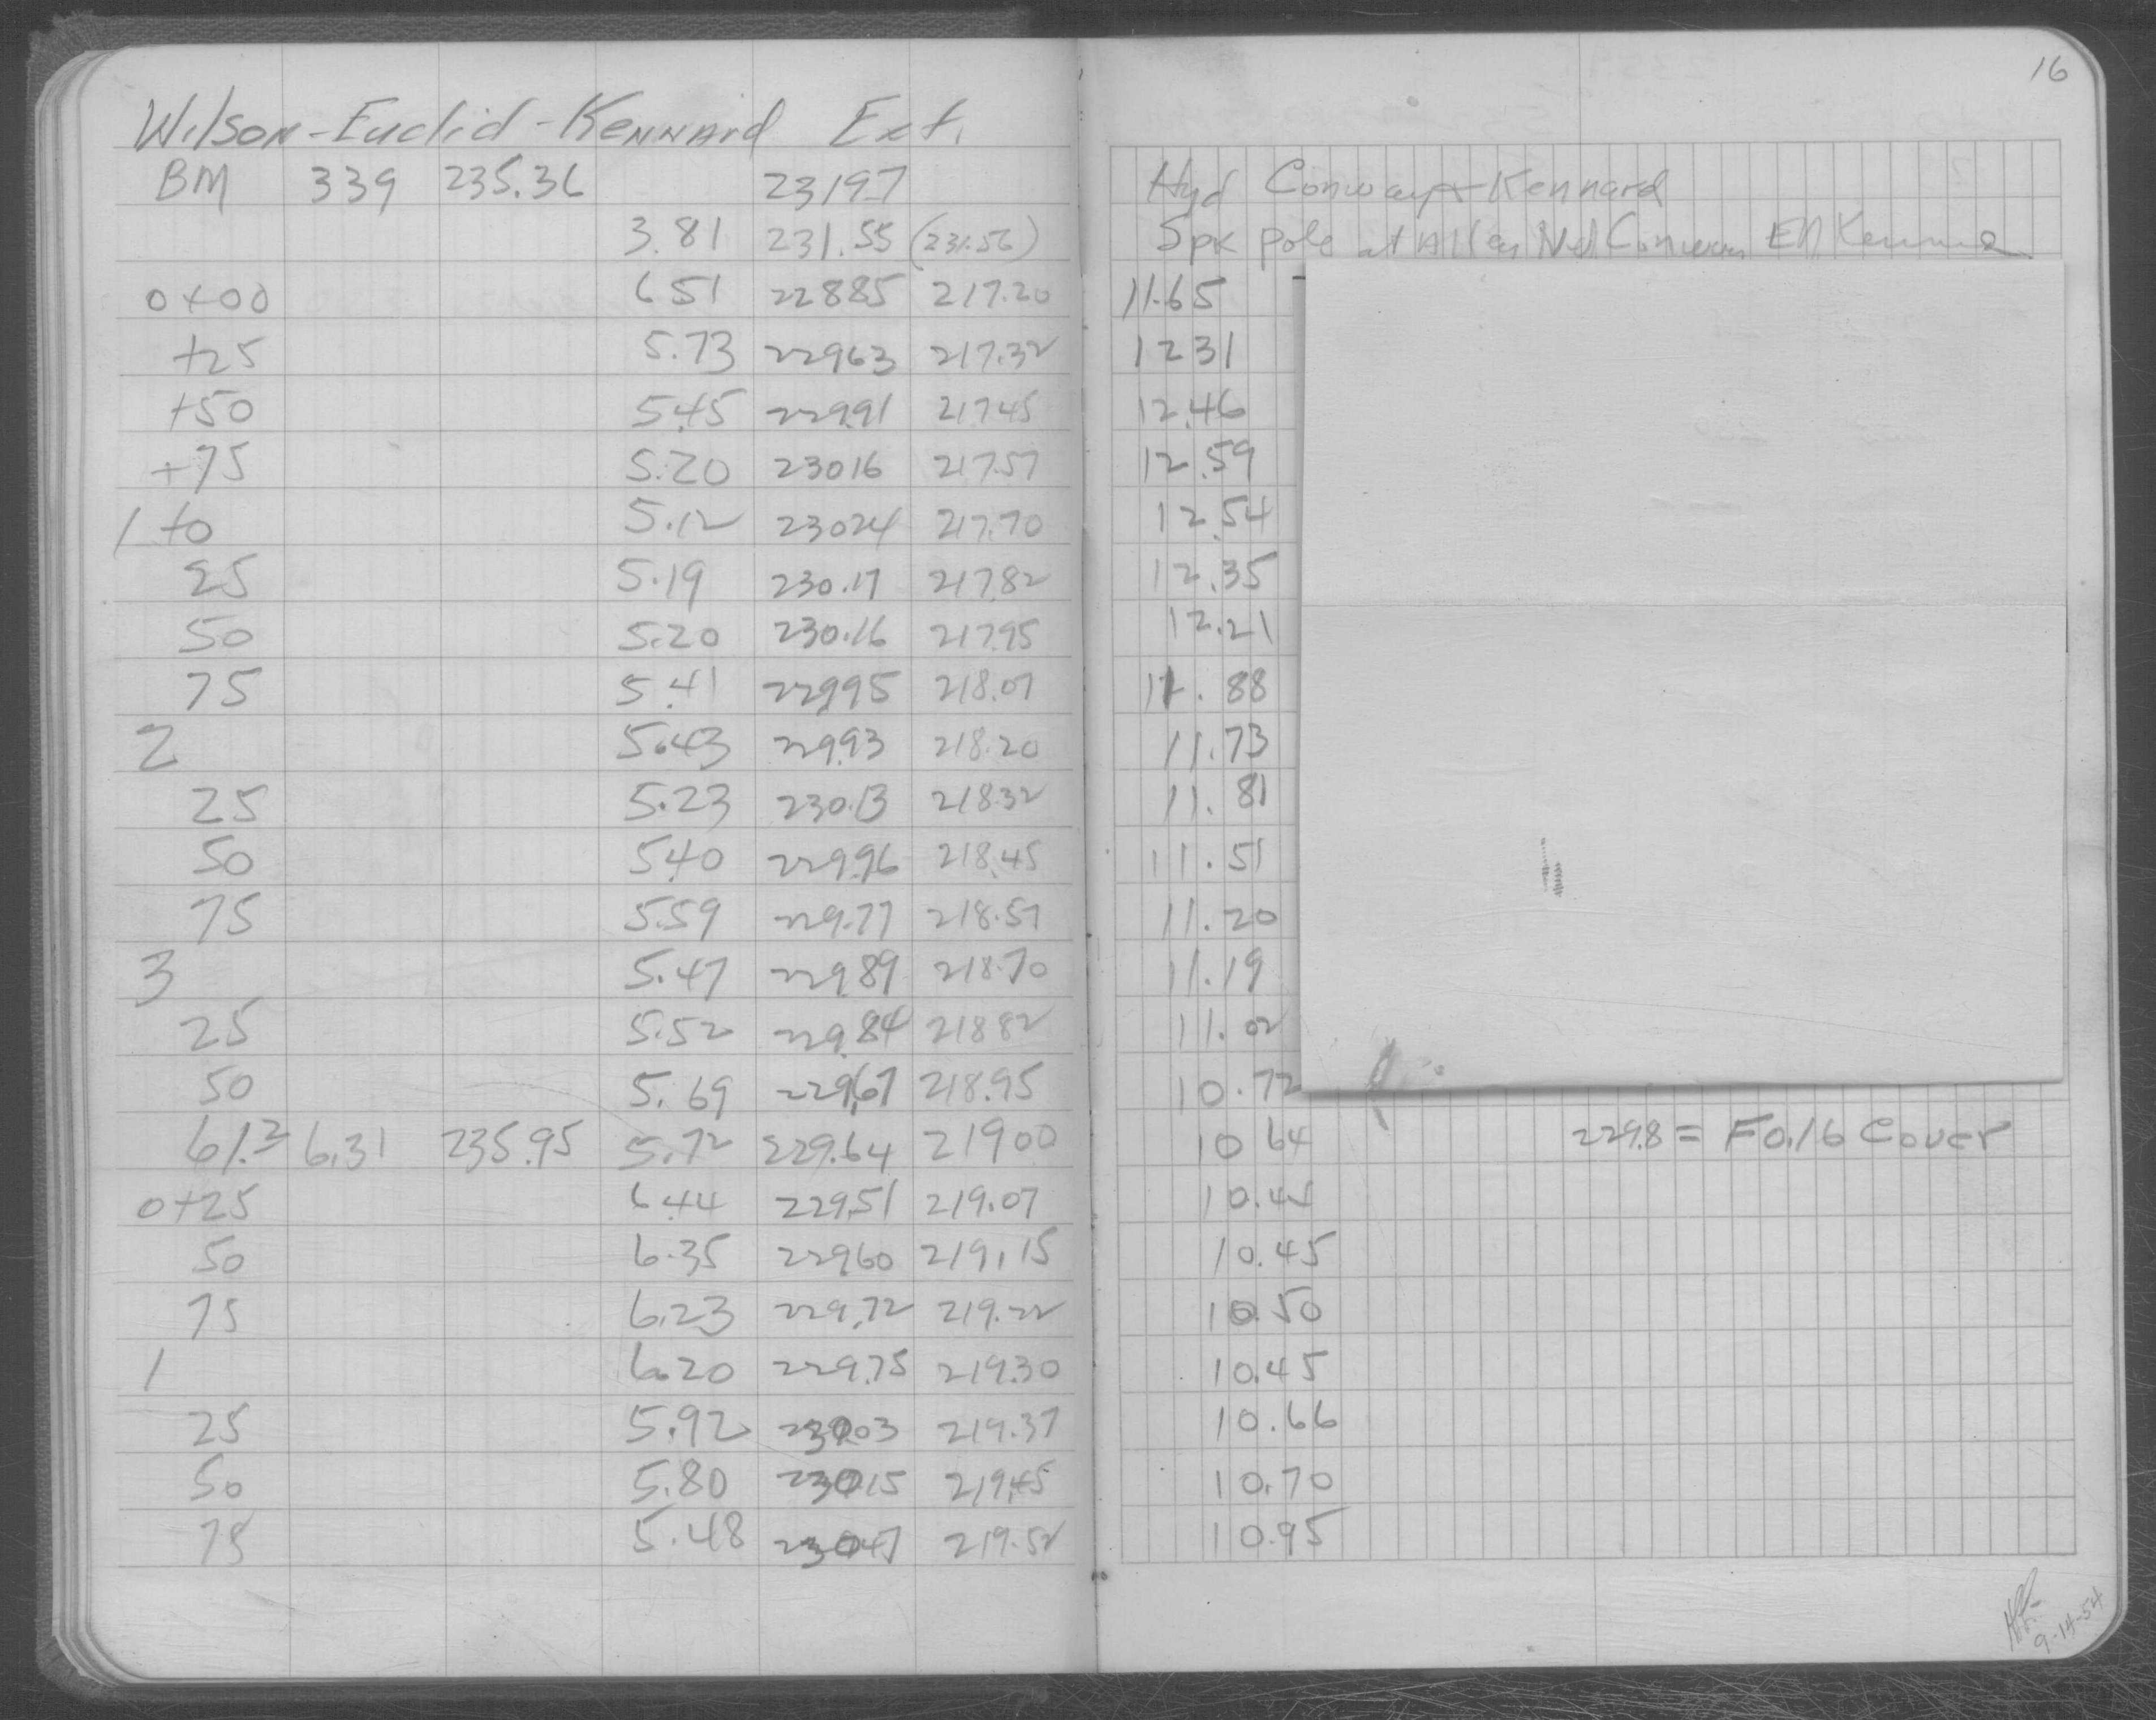 16
Wilson-Euclid-Kennard Ext.
BM 339 235.36 23197 Hyd Conway + Kennard
3.81 231.55 (231.56) Spk pole at Alley Kenna
0+00 651 22885 217.20 11.65
+25 5.73 22963 217.32 1231
+50 5.45 229.91 217.45 12.46
+75 5.20 23016 217.57 12.59
1+0 5.12 23024 217.70 12.54
25 5.19 230.17 217.82 12.35
50 5.20 230.16 217.95 12.21
75 5.41 229.95 218.07 11.88
2 5.43 229.93 218.20 11.73
25 5.23 230.13 218.32 11.81
50 5.40 229.96 218.45 11.51
75 5.59 229.77 218.57 11.20
3 5.47 229.89 218.70 11.19
25 5.52 229.84 21882 11.02
50 5.69 229.67 218.95 10.72
61.2 6.31 235.95 5.72 229.64 21900 10 64 229.8 = F0.16 Cover
0+25 6.44 229.51 219.07 10.44
50 6.35 22960 219.15 10.45
75 6.23 229.72 219.22 10.50
1 6.20 229.75 219.30 10.45
25 5.92 230.03 219.37 10.66
50 5.80 230.15 219.45 10.70
75 5.48 23047 219.52 10.95
9-14-54